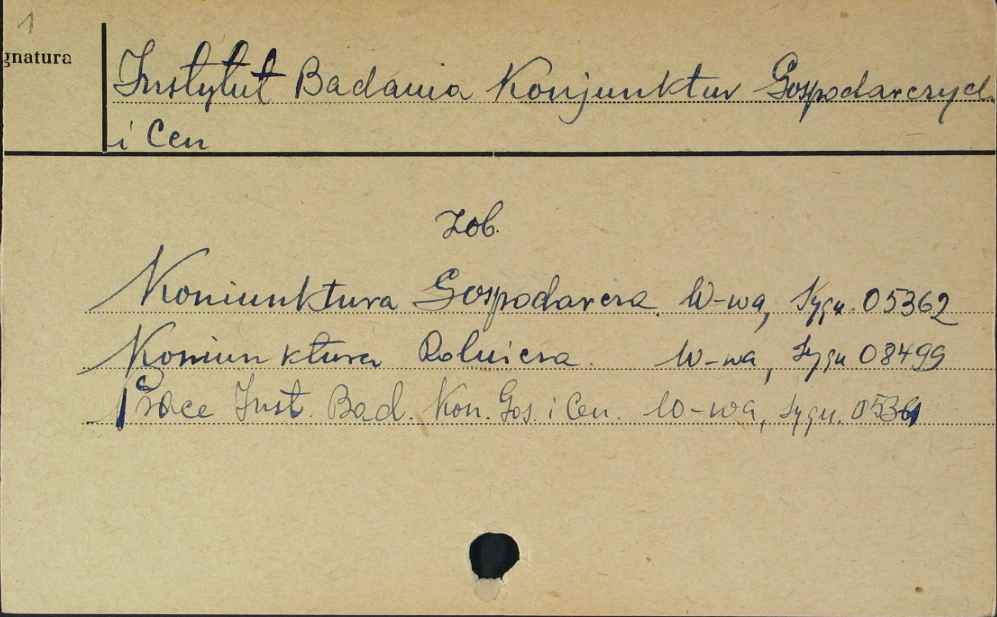 1
gnatura
Instytut Badania Konjunktur Gospodarczych
i Cen
Zob.
Koniunktura Gospodarcza. W-wa, Sygn. 05362
Koniunktura Rolnicza. W-wa, Sygn 08499
Prace Inst. Bad. Kon. Gos. i Cen. W-wa, Sygn. 05361